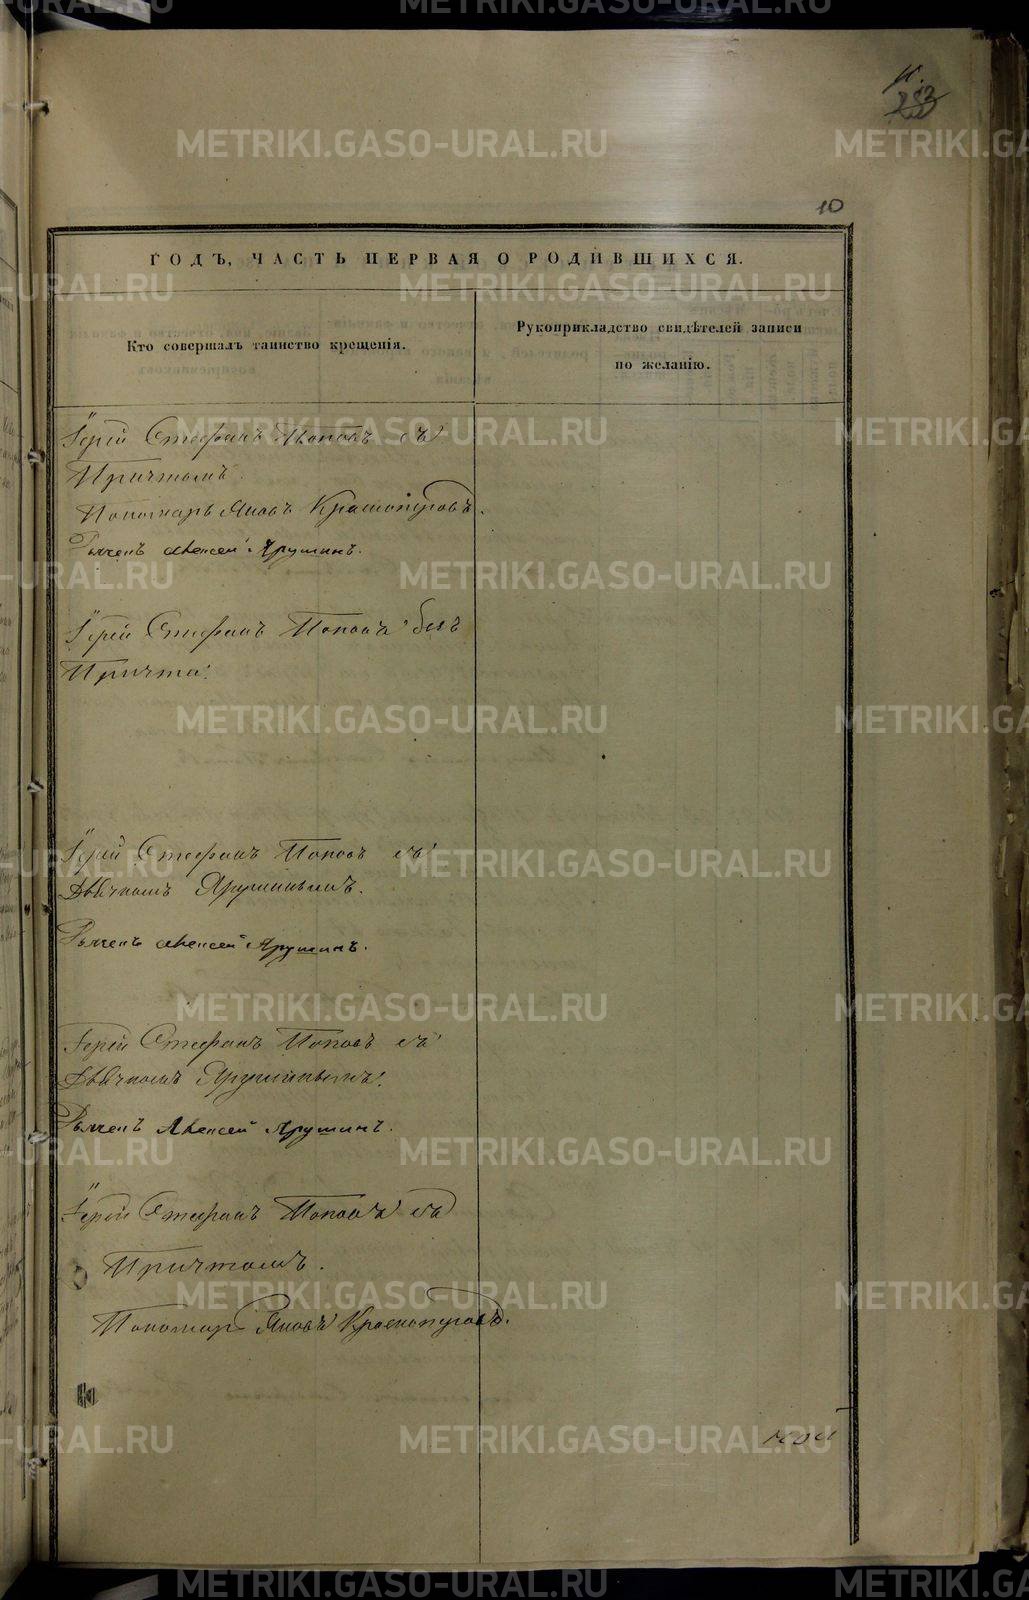 10
ГОДЪ, ЧАСТЬ ПЕРВАЯ О РОДИВШИХСЯ.
Кто совершалъ таинство крещенія.
Рукоприкладство свидѣтелей записи
по желанію.
Іерей Стефанъ Поповъ съ
Причтомъ.
Пономарь Яковъ Красноперовъ.
Алексей Ярушинъ.
Іерей Стефанъ Поповъ безъ
Причта.
Іерей Стефанъ Поповъ съ
Дьячкомъ Ярушинымъ.
Алексей Ярушинъ.
Іерей Стефанъ Поповъ съ
Дьячкомъ Ярушинымъ.
Алексей Ярушинъ.
Іерей Стефанъ Поповъ съ
Причтомъ.
Пономарь Яковъ Красноперовъ.
METRIKI.GASO-URAL.RU